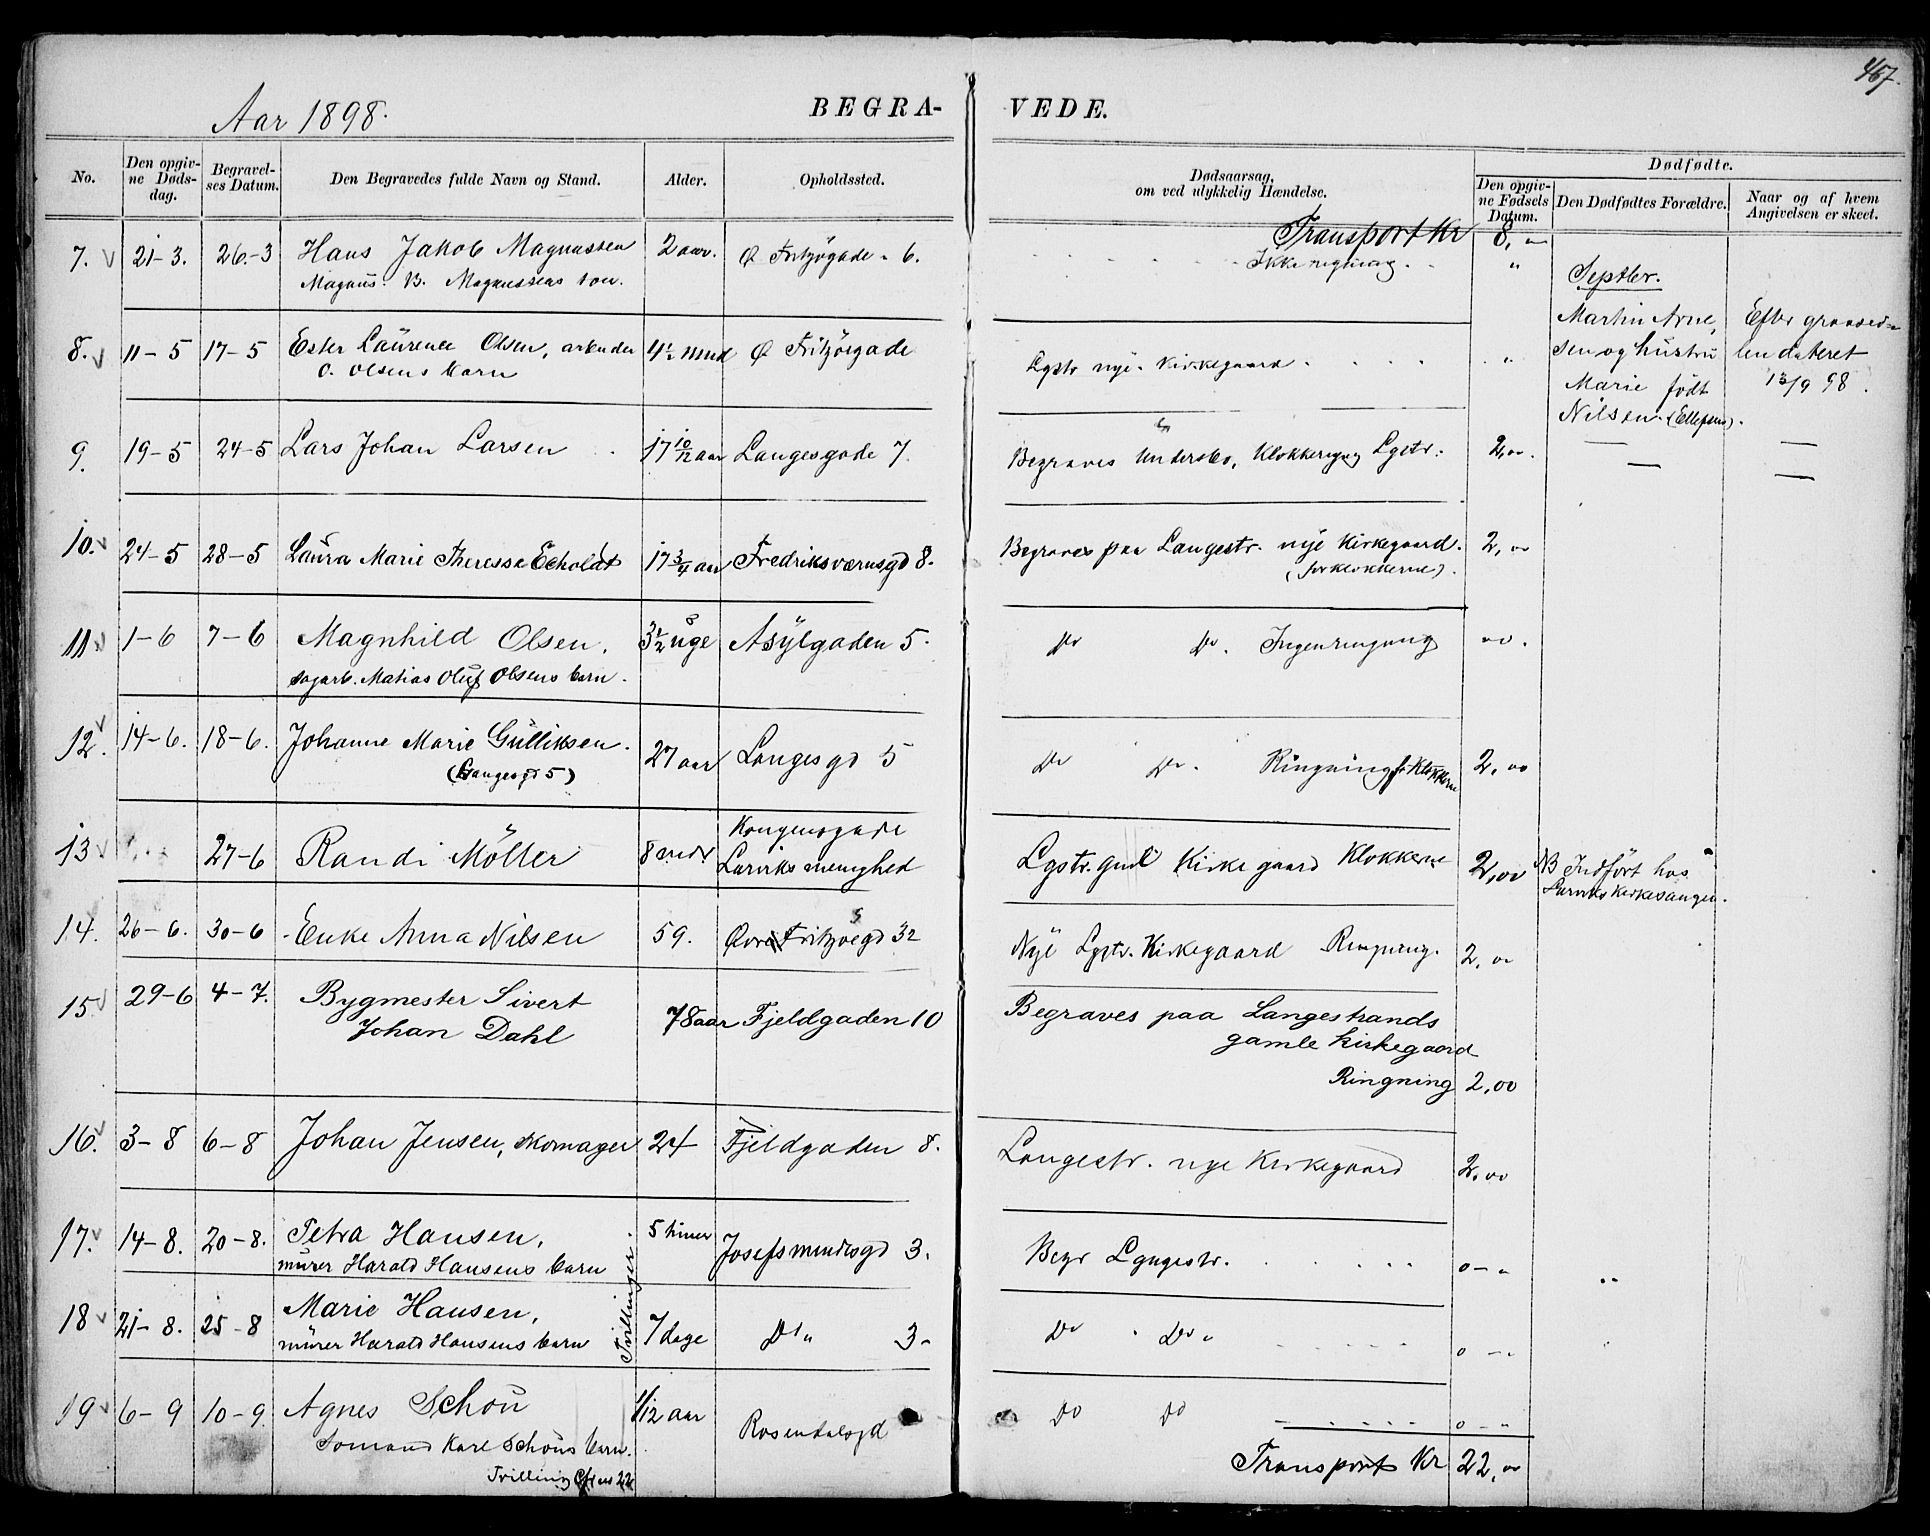 467.
Aar 1898.
BEGRA-
VEDE.
No.
Den opgiv-
ne Døds-
dag.
Begravel-
ses Datum.
Den Begravedes fulde Navn og Stand.
Alder.
Opholdssted.
Dødsaarsag,
om ved ulykkelig Hændelse.
Dødfødte.
Den opgiv-
ne Fødsels
Datum.
Den Dødfødtes Forældre.
Naar og af hvem
Angivelsen er skeet.
Transport Kr 8,00
7. 21-3. 26-3 Hans Jakob Magnussen 2 aar. Ø Fritzøgade. 6. Ikke rigning. "
Magnus. B. Magnussens søn.
Septbr.
Martin Arne,
sen og hustru
Marie født
Nilsen. (Ellefsens).
Efter graased-
len dateret
13/9 98.
8. 11-5 17-5 Ester Laurence Olsen, arbeider 4½ mnd Ø Fritzøegade Lgstr nye. Kirkegaard. "
O. Olsens barn
9. 19-5 24-5 Lars Johan Larsen 17 10/12 aar Langesgade 7. Begraves Undersbo, Klokkeringng Lgstr: 2,00.
10. 24-5 28-5 Laura Marie Theresse Echoldt 17 3/4 aar Fredriksværnsgd 8. Begraves paa Langestr. nye Kirkegaard. 2,00
(for klokkerne).
11 1-6 7-6 Magnhild Olsen, 3½ uge Asylgaden 5. Do Do. Ingen ringning oo.
sagarb. Matias Oluf Olsens barn.
12. 14-6. 18-6. Johanne Marie Gulliksen. 27 aar Langesgd 5 Do Do. Ringning f. Klokkerne 2,00
(Langesgd 5)
13 27-6 Randi Möller 8 mdr Kongensgade
Larviks menighed
Lgstr. gml Kirkegaard Klokkerne 2,00 NB Indført hos
Larviks Kirkesanger.
14. 26-6. 30-6 Enke Anna Nilsen 59. Øvre Fritzøegd 32 Nye Lgstr. Kirkegaard Ringning. 2,00
15 29-6 4-7. Bygmester Sivert
Johan Dahl
78 aar Fjeldgaden 10 Begraves paa Langestrands
gamle Kirkegaard
Ringning 2,00
16. 3-8 6-8 Johan Jensen, skomager 24 Fjeldgaden 8. Langestr. nye Kirkegaard 2,00
17. 14-8. 20-8. Petra Hansen, 5 timer Josefsmindesgd 3. Begr Langestr. 0-"
murer Harald Hansens barn
Tvillinger.
18 21-8. 25-8 Marie Hansen, 7 dage Do " 3- Do " Do " 0-"
murer Harald Hansens barn
19 6-9 10-9 Agnes Schou 1/12 aar Rosendalsgd Do Do 0-"
Sømand Karl Schous barn.
Tvilling Cfr no 22
Transport Kr 22,00